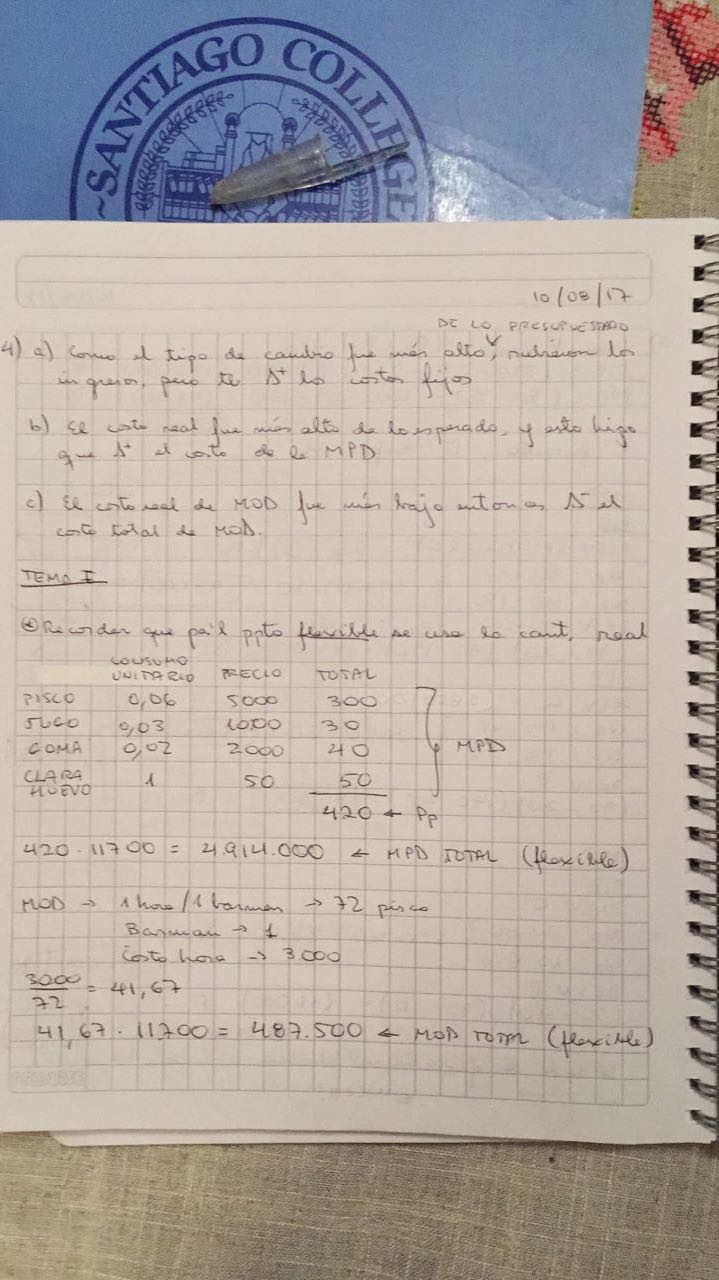 ~SANTIAGO COLLEGE
10/08/17
DE LO PRESUPUESTADO
4) a) Como el tipo de cambio fue más alto, subieron los
ingresos, pero tb Δ+ los costos fijos
b) El costo real fue más alto de lo esperado, y esto hizo
que Δ+ el costo de la MPD
c) El costo real de MOD fue más bajo entonces Δ- el
costo total de MOD.
TEMA I
* Recordar que pa'l ppto flexible se usa la cant. real
CONSUMO UNITARIO PRECIO TOTAL
PISCO 0,06 5000 300
JUGO 0,03 1000 30
GOMA 0,02 2000 40
CLARA HUEVO 1 50 50
MPD
420 ← Pp
420 · 11700 = 4.914.000 ← MPD TOTAL (flexible)
MOD → 1 hora/1 barman → 72 pisco
Barman → 1
Costo hora → 3.000
3000/72 = 41,67
41,67 · 11700 = 487.500 ← MOD TOTAL (flexible)